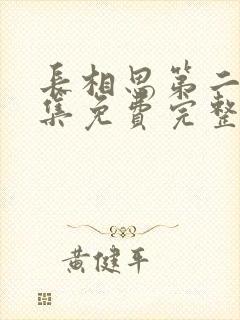 長相思第二
集免費完整
黃健平